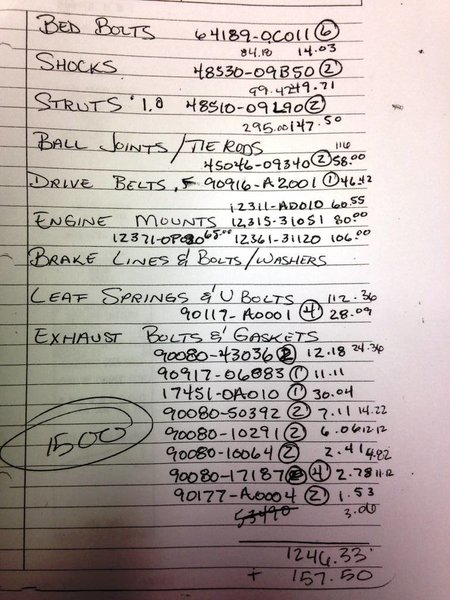 BED BOLTS 64189-0C011 (6)
84.18 14.03
SHOCKS 48530-09B50 (2)
99.42 49.71
STRUTS 1.8 48510-09L90 (2)
295.00 147.50
BALL JOINTS / TIE RODS 116
45046-09340 (2) 58.00
DRIVE BELTS .5 90916-A2001 (1) 46.42
12311-AD010 60.55
ENGINE MOUNTS 12315-31051 80.00
12371-0P020 65.00 12361-31120 106.00
BRAKE LINES & BOLTS / WASHERS
LEAF SPRINGS & U BOLTS 112.36
90117-A0001 (4) 28.09
EXHAUST BOLTS & GASKETS
90080-43036 (2) 12.18 24.36
90917-06083 (1) 11.11
17451-0A010 (1) 30.04
90080-50392 (2) 7.11 14.22
1500
90080-10291 (2) 6.06 12.12
90080-10064 (2) 2.41 4.82
90080-17187 (4) 2.78 11.12
90177-A0004 (2) 1.53
53490 3.06
1246.33
+ 157.50